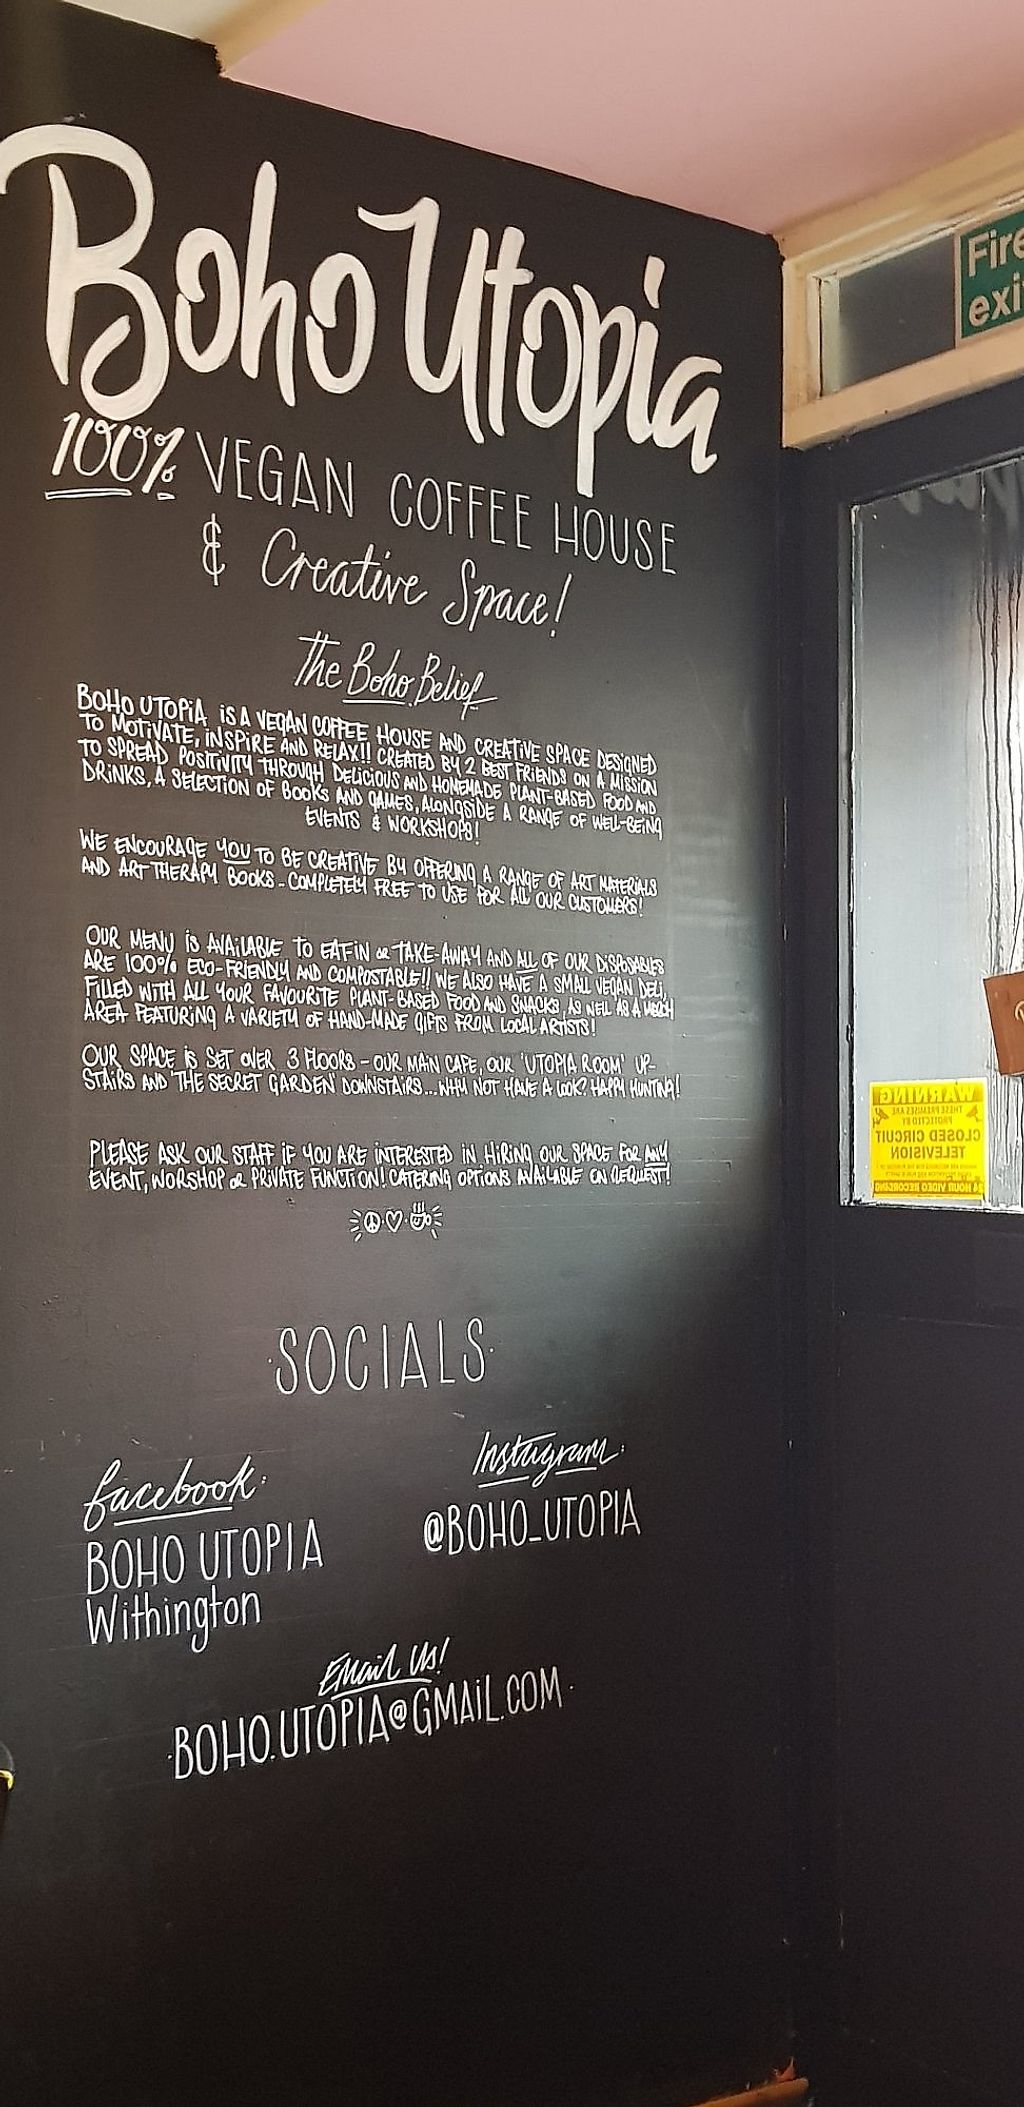 Boho Utopia
100% VEGAN COFFEE HOUSE
& Creative Space!
The Boho Belief
BOHO UTOPIA IS A VEGAN COFFEE HOUSE AND CREATIVE SPACE DESIGNED
TO MOTIVATE, INSPIRE AND RELAX!! CREATED BY 2 BEST FRIENDS ON A MISSION
TO SPREAD POSITIVITY THROUGH DELICIOUS AND HOMEMADE PLANT-BASED FOOD AND
DRINKS, A SELECTION OF BOOKS AND GAMES, ALONGSIDE A RANGE OF WELL-BEING
EVENTS & WORKSHOPS!
WE ENCOURAGE YOU TO BE CREATIVE BY OFFERING A RANGE OF ART MATERIALS
AND ART THERAPY BOOKS - COMPLETELY FREE TO USE FOR ALL OUR CUSTOMERS!
OUR MENU IS AVAILABLE TO EAT-IN or TAKE-AWAY AND ALL OF OUR DISPOSABLES
ARE 100% ECO-FRIENDLY AND COMPOSTABLE!! WE ALSO HAVE A SMALL VEGAN DELI,
FILLED WITH ALL YOUR FAVOURITE PLANT-BASED FOOD AND SNACKS, AS WELL AS A MERCH
AREA FEATURING A VARIETY OF HAND-MADE GIFTS FROM LOCAL ARTISTS!
OUR SPACE IS SET OVER 3 FLOORS - OUR MAIN CAFE, OUR 'UTOPIA ROOM' UP-
STAIRS AND 'THE SECRET GARDEN DOWNSTAIRS... WHY NOT HAVE A LOOK? HAPPY HUNTING!
PLEASE ASK OUR STAFF IF YOU ARE INTERESTED IN HIRING OUR SPACE FOR ANY
EVENT, WORSHOP or PRIVATE FUNCTION! CATERING OPTIONS AVAILABLE ON REQUEST!
SOCIALS
facebook:
BOHO UTOPIA
Withington
Instagram:
@BOHO_UTOPIA
Email Us!
BOHO.UTOPIA@GMAIL.COM
Fire
exi
WARNING
THESE PREMISES ARE
PROTECTED BY
CLOSED CIRCUIT
TELEVISION
24 HOUR VIDEO RECORDING